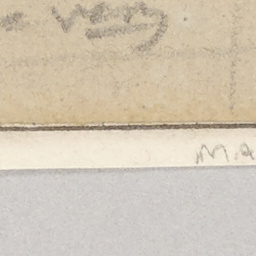 very
M.A